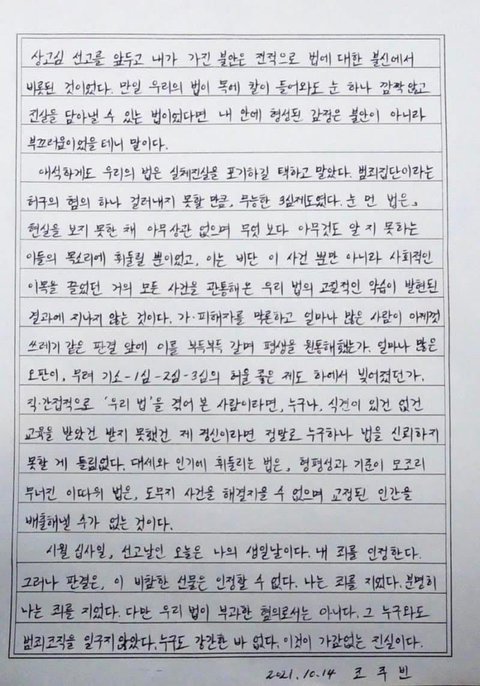 상고심 선고를 앞두고 내가 가진 불안은 전적으로 법에 대한 불신에서
비롯된 것이었다. 만일 우리의 법이 목에 칼이 들어와도 눈 하나 깜짝 않고
진실을 담아낼 수 있는 법이었다면 내 안에 형성된 감정은 불안이 아니라
부끄러움이었을 테니 말이다.
애석하게도 우리의 법은 실체진실을 포기하길 택하고 말았다. 범죄집단이라는
허구의 혐의 하나 걸러내지 못할 만큼, 무능한 3심제도였다. 눈 먼 법은,
현실을 보지 못한 채 아무상관 없으며 무엇 보다 아무것도 알 지 못하는
이들의 목소리에 휘둘릴 뿐이었고, 이는 비단 이 사건 뿐만 아니라 사회적인
이목을 끌었던 거의 모든 사건을 관통해온 우리 법의 고질적인 악습이 발현된
결과에 지나지 않는 것이다. 가·피해자를 막론하고 얼마나 많은 사람이 여지껏
쓰레기 같은 판결 앞에 이를 부득부득 갈며 평생을 원통해했는가. 얼마나 많은
오판이, 무려 기소-1심-2심-3심의 허울 좋은 제도 하에서 빚어졌던가.
직·간접적으로 '우리 법'을 겪어 본 사람이라면, 누구나. 식견이 있건 없건
교육을 받았건 받지 못했건 제 정신이라면 정말로 누구하나 법을 신뢰하지
못할 게 틀림없다. 대세와 인기에 휘둘리는 법은, 형평성과 기준이 모조리
무너진 이따위 법은, 도무지 사건을 해결지을 수 없으며 교정된 인간을
배출해낼 수가 없는 것이다.
시월 십사일, 선고날인 오늘은 나의 생일날이다. 내 죄를 인정한다.
그러나 판결은, 이 비참한 선물은 인정할 수 없다. 나는 죄를 지었다. 분명히
나는 죄를 지었다. 다만 우리 법이 부과한 혐의로서는 아니다. 그 누구와도
범죄조직을 일구지 않았다. 누구도 강간한 바 없다. 이것이 가감없는 진실이다.
2021. 10. 14 조 주 빈